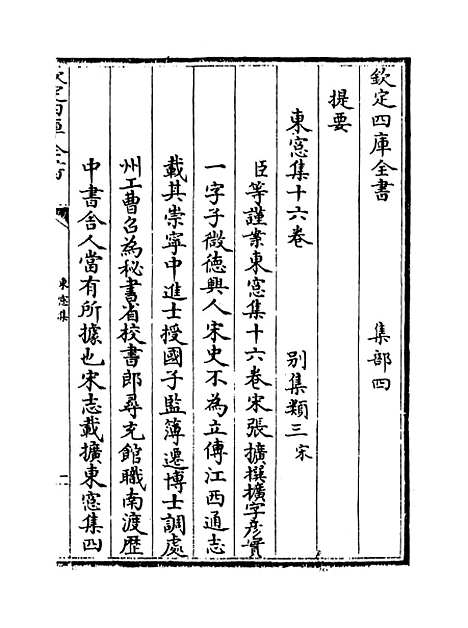 欽定四庫全書　集部四
提要
東窓集十六卷　別集類三宋
臣等謹案東窓集十六卷宋張擴撰擴字彦實
一字子微德興人宋史不為立傳江西通志
載其崇寧中進士授國子監簿遷博士調處
州工曹召為秘書省校書郎尋充館職南渡歴
中書舍人當有所據也宋志載擴東窓集四
欽定四庫全書
東窓集
一